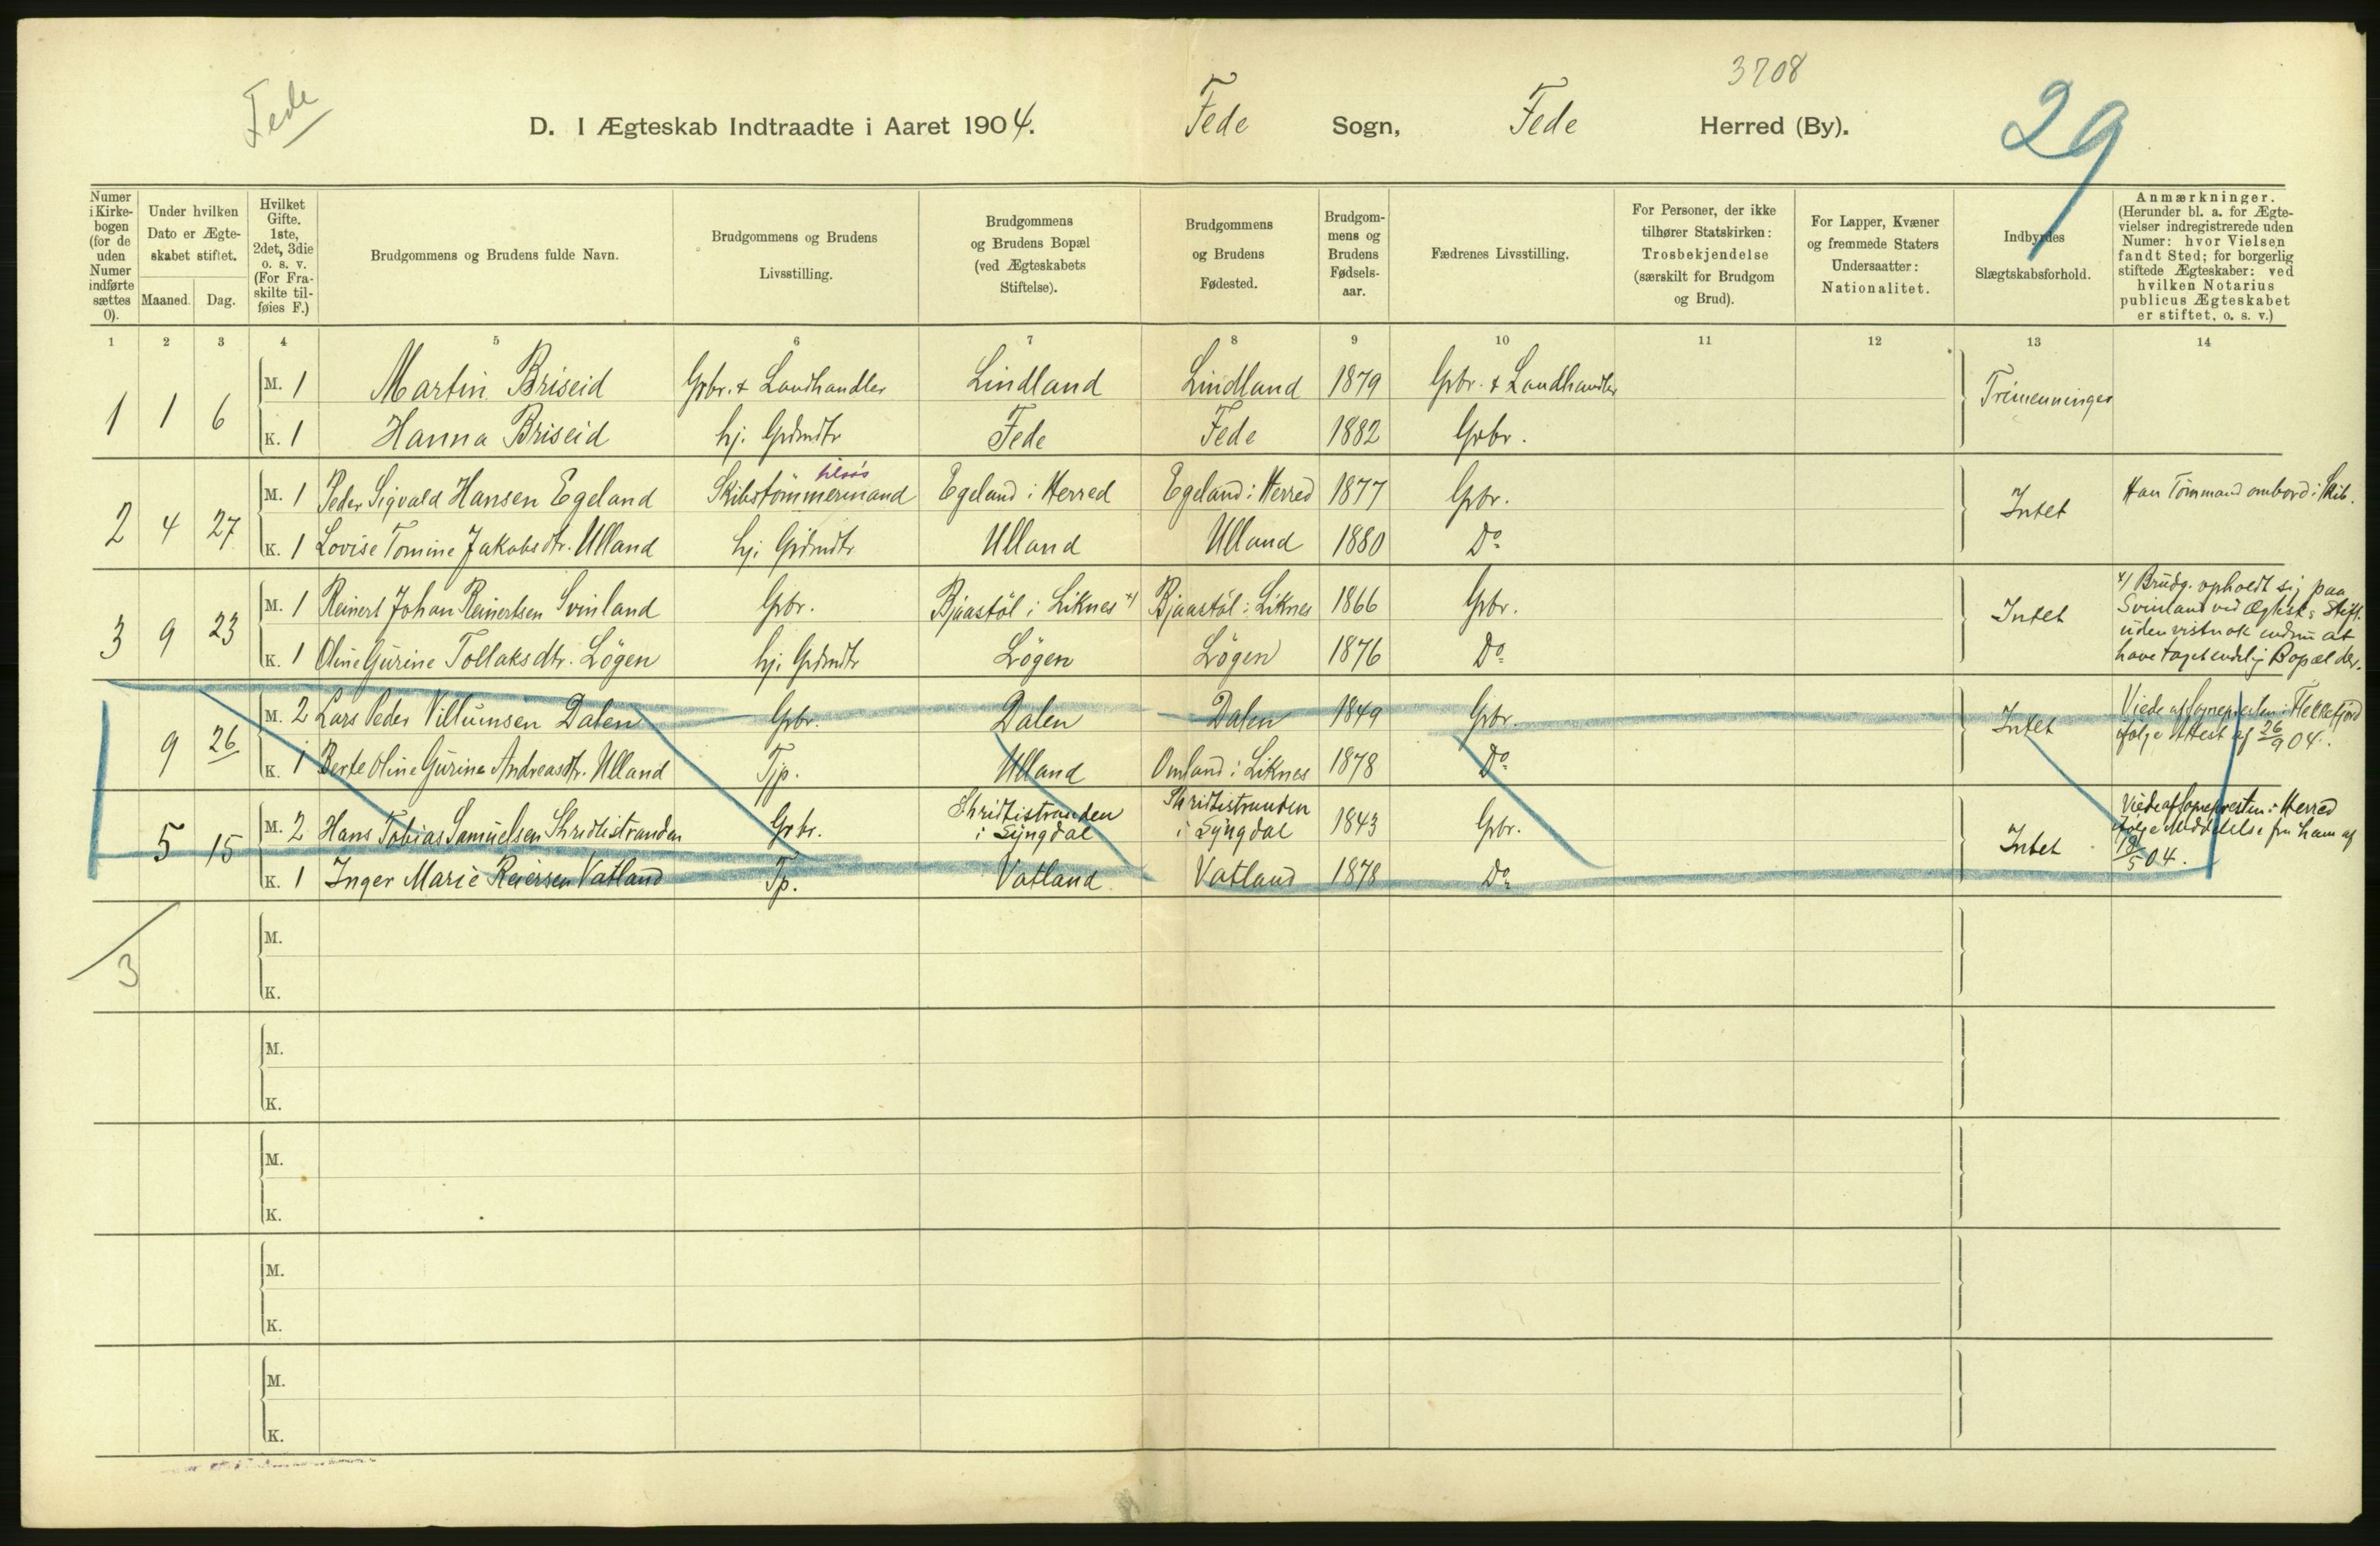 Fede
3708
29
D. I Ægteskab Indtraadte i Aaret 1904. Fede Sogn, Fede Herred (By).
Numer i Kirke-bogen (for de uden Numer indførte sættes 0).
Under hvilken Dato er Ægte-skabet stiftet.
Maaned. Dag.
Hvilket Gifte. 1ste, 2det, 3die o. s. v. (For Fra-skilte til-føies F.)
Brudgommens og Brudens fulde Navn.
Brudgommens og Brudens Livsstilling.
Brudgommens og Brudens Bopæl (ved Ægteskabets Stiftelse).
Brudgommens og Brudens Fødested.
Brudgom-mens og Brudens Fødsels-aar.
Fædrenes Livsstilling.
For Personer, der ikke tilhører Statskirken: Trosbekjendelse (særskilt for Brudgom og Brud).
For Lapper, Kvæner og fremmede Staters Undersaatter: Nationalitet.
Indbyrdes Slægtskabsforhold.
Anmærkninger. (Herunder bl. a. for Ægte-vielser indregistrerede uden Numer: hvor Vielsen fandt Sted; for borgerlig stiftede Ægteskaber: ved hvilken Notarius publicus Ægteskabet er stiftet, o. s. v.)
1 2 3 4 5 6 7 8 9 10 11 12 13 14
1 1 6
M. 1 Martin Briseid Gbr. & Landhandler Lindland Lindland 1879 Gbr. & Landhandler Trimenninger
K. 1 Hanna Briseid hj. Grdmdtr Fede Fede 1882 Gbr.
2 4 27
M. 1 Peder Sigvald Hansen Egeland Skibstömmermand Egeland i Herred Egeland i Herred 1877 Gbr. Intet Han Tömmand ombord i Skib.
K. 1 Lovise Tomine Jakobsdtr. Ulland hj. Grdmdtr Ulland Ulland 1880 Do
3 9 23
M. 1 Reinert Johan Reinertsen Svinland Gbr. Bjaastöl i Liknes x) Bjaastöl i Liknes 1866 Gbr. Intet
K. 1 Oline Gurine Tollaksdtr. Lögen hj. Grdmdtr Lögen Lögen 1876 Do
x) Brudg. opholdt sig paa
Svinland ved Ægtsk.s Stift.
uden vistnok endnu at
have taget endelig Bopæl der.
9 26
M. 2 Lars Peder Villumsen Dalen Gbr. Dalen Dalen 1849 Gbr. Intet
K. 1 Berte Oline Gurine Andreasdtr. Ulland Tjp. Ulland Omland i Liknes 1878 Do
Viede af Sognepresten i Flekkefjord
ifölge Attest af 26/9 04.
5 15
M. 2 Hans Tobias Samuelsen Skridlistranden Gbr. Skridlistranden i Lyngdal Skridlistranden i Lyngdal 1843 Gbr. Intet
K. 1 Inger Marie Reiersen Vatland Tp. Vatland Vatland 1878 Do
Viede af Sognepresten i Herred
ifölge Meddelelse fra ham af
18/5 04.
3
M.
K.
M.
K.
M.
K.
M.
K.
M.
K.